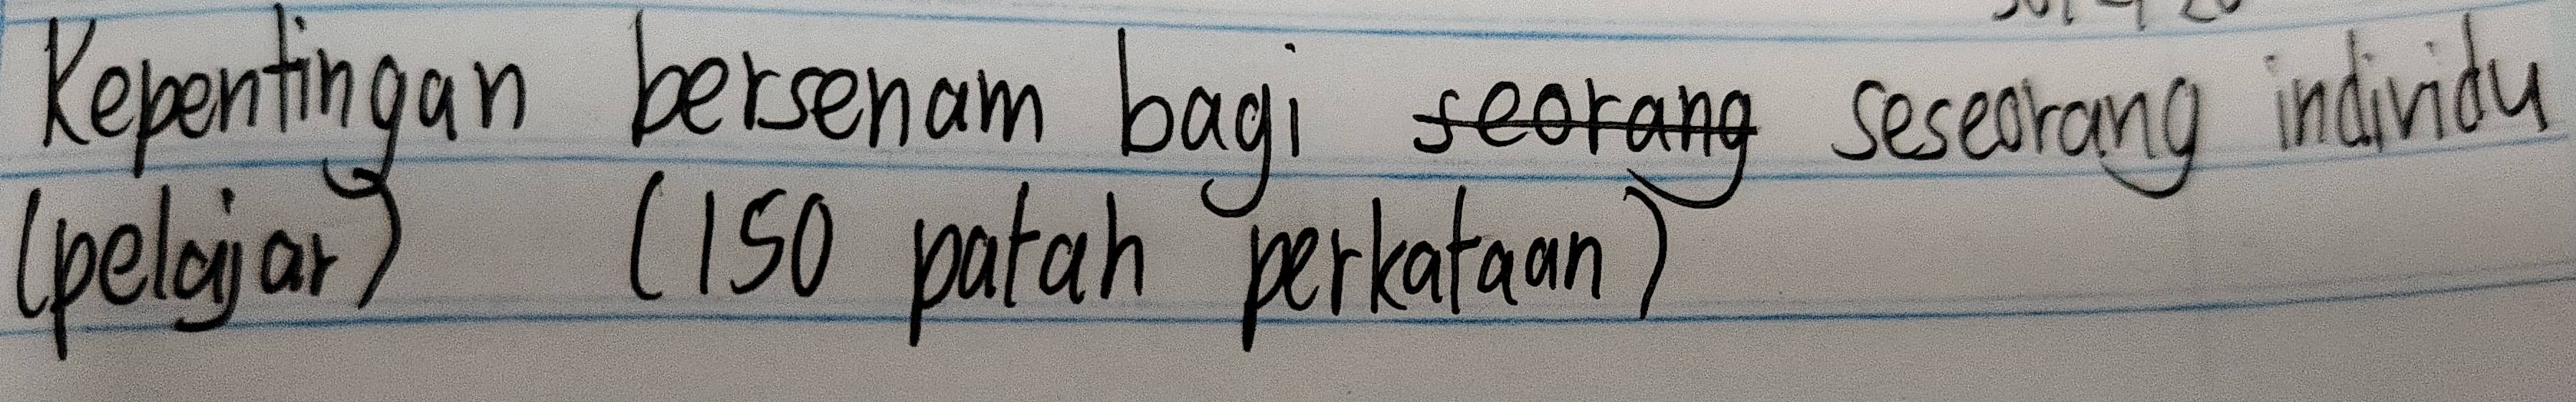 Kepentingan bersenam bagi seorang seseorang individu
(pelajar) (150 patah perkataan)